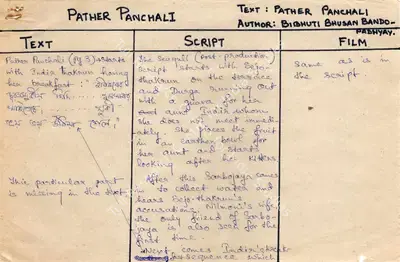 PATHER PANCHALI
TEXT: PATHER PANCHALI
AUTHOR: BIBHUTI BHUSAN BANDO-
PADHYAY.
TEXT
Pather Panchali (Pg 3) starts
with Indir thakrun having
her breakfast:
This particular part
is missing in the text.
SCRIPT
The script (Post-production)
script starts with Sejo-
thakrun on the terrace
and Durga running out
with a guava for her
aunt Indir whom
she does not meet immedi-
ately. She places the fruit
in an earthen bowl for
her aunt and starts
looking after her kittens
After this Sarbojaya comes
in to collect water and
hears Sejo-thakrun's
accusations. Nilmoni's wife
the only friend of Sarbo-
jaya is also seen for the
first time.
Next comes Indir
sequence which
FILM
Same as is in
the script